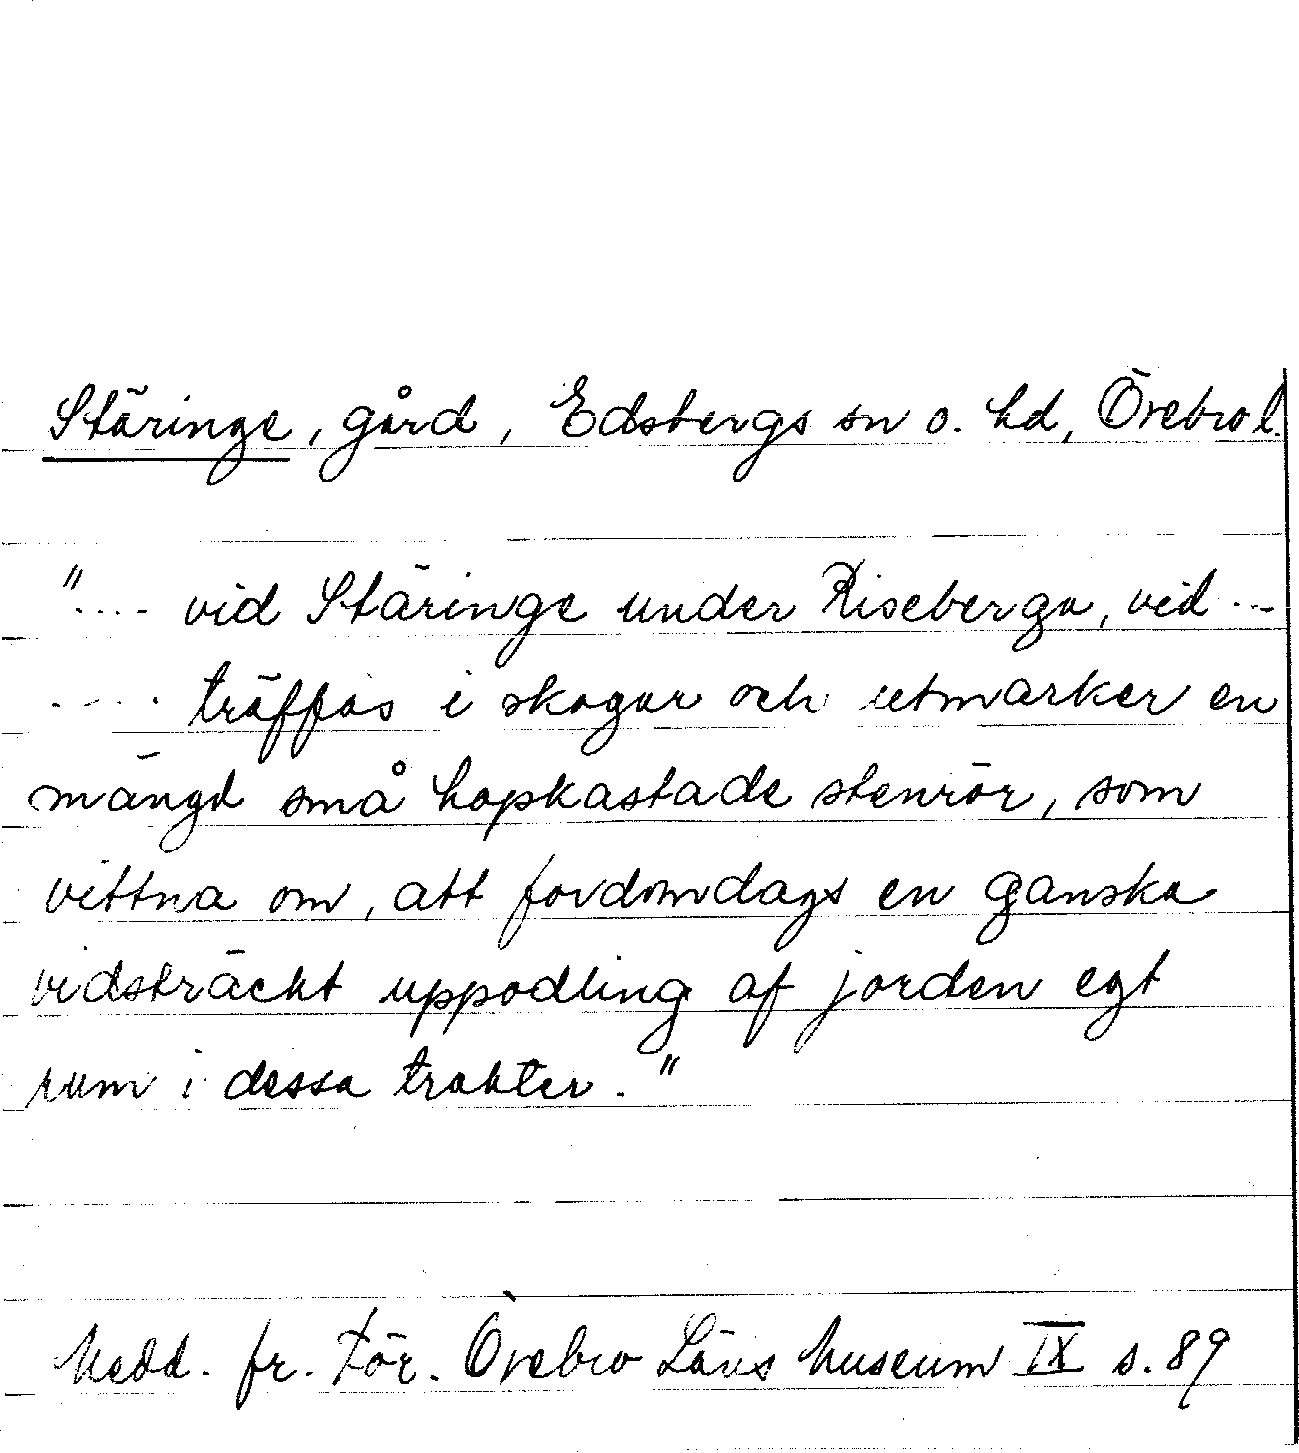 Stäringe, gård, Edsbergs sn o. hd, Örebro l.
".... vid Stäringe under Riseberga, vid ...
.... träffas i skogar och utmarker en
mängd små hopkastade stenrör, som
vittna om, att fordomdags en ganska
vidsträckt uppodling af jorden egt
rum i dessa trakter."
Medd. fr. För. Örebro Läns Museum IX s. 89